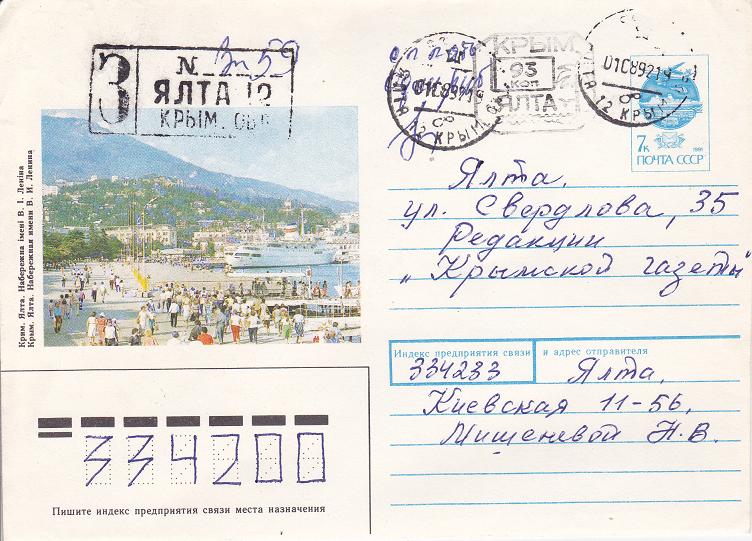 З
№ Вп 59
ЯЛТА 12
КРЫМ. ОБЛ
КРЫМ
93
коп
ЯЛТА
01089219
12 КРЫМ.
01089219
ЯЛТА 12 КРЫМ
7к
1991
ПОЧТА СССР
Крим. Ялта. Набережна імені В. І. Леніна
Крым. Ялта. Набережная имени В. И. Ленина
Ялта,
ул. Свердлова, 35
Редакции
„Крымской газеты"
Индекс предприятия связи и адрес отправителя
334233 Ялта,
Киевская 11-56,
Мишеневой Н.В.
334200
Пишите индекс предприятия связи места назначения